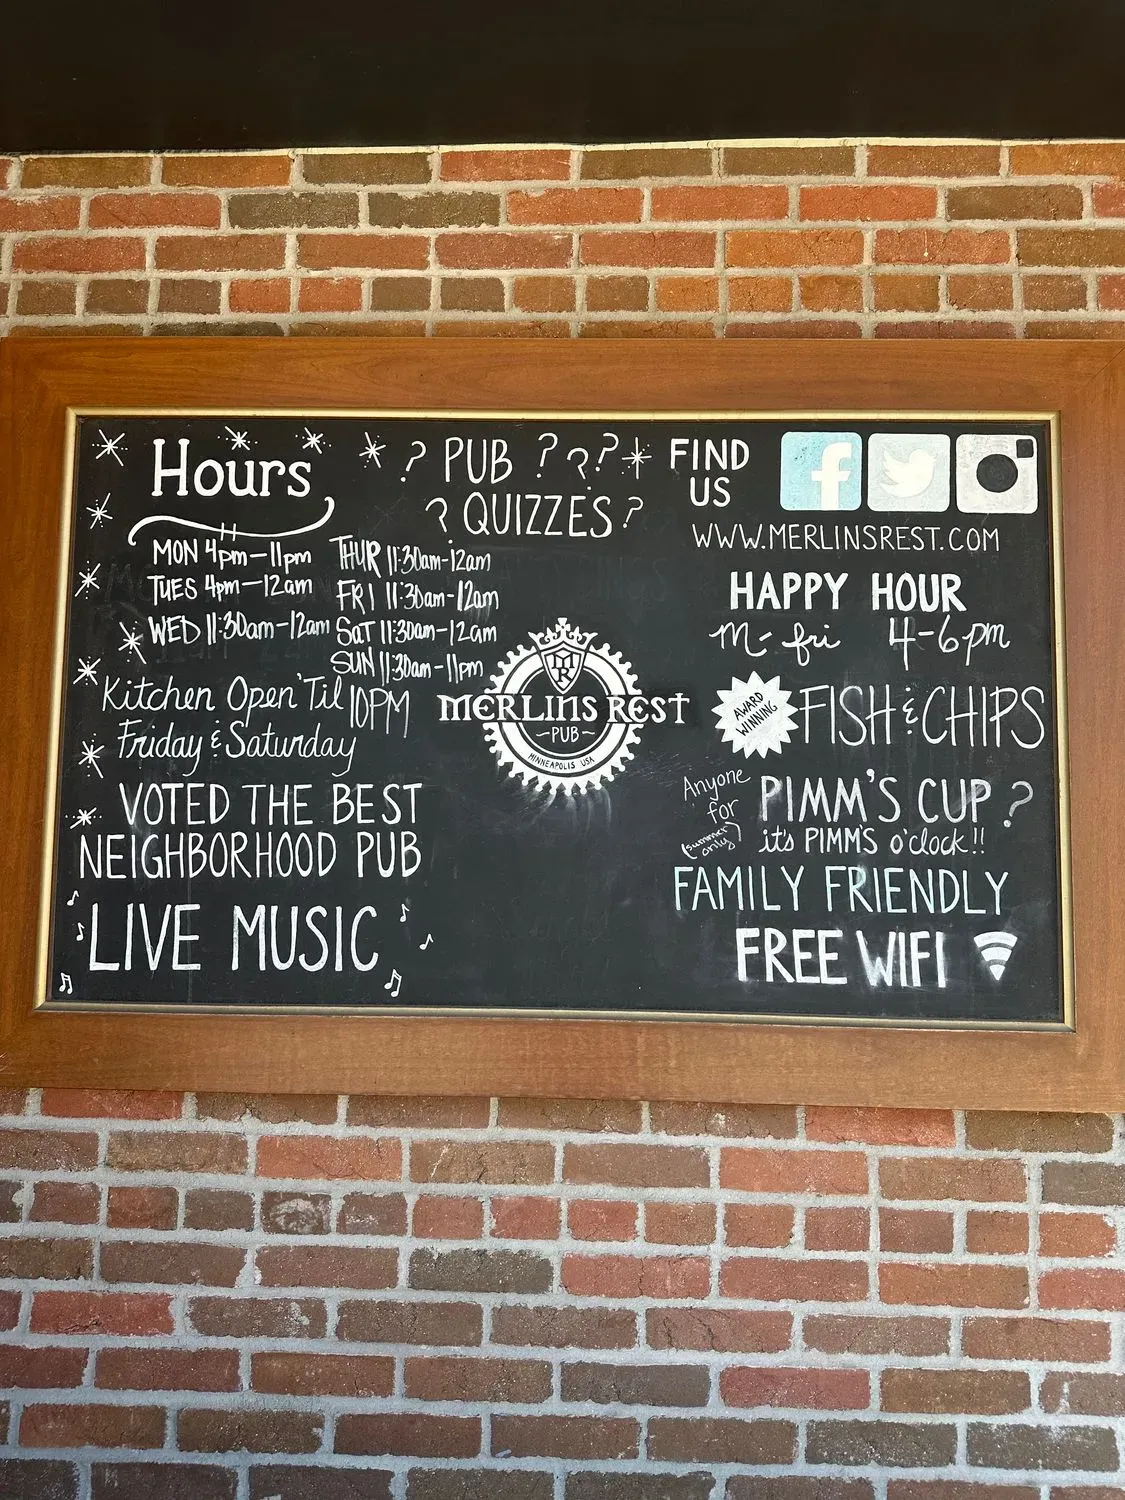 Hours
MON 4pm-11pm
TUES 4pm-12am
WED 11:30am-12am
THUR 11:30am-12am
FRI 11:30am-12am
SAT 11:30am-12am
SUN 11:30am-11pm
Kitchen Open 'Til 10PM
Friday & Saturday
VOTED THE BEST
NEIGHBORHOOD PUB
LIVE MUSIC
? PUB ???
? QUIZZES?
MR
MERLINS REST
-PUB-
MINNEAPOLIS USA
FIND
US
f
WWW.MERLINSREST.COM
HAPPY HOUR
M-fri 4-6pm
AWARD
WINNING
FISH & CHIPS
Anyone
for
(summer
only)
PIMM'S CUP?
it's PIMM'S o'clock!!
FAMILY FRIENDLY
FREE WIFI